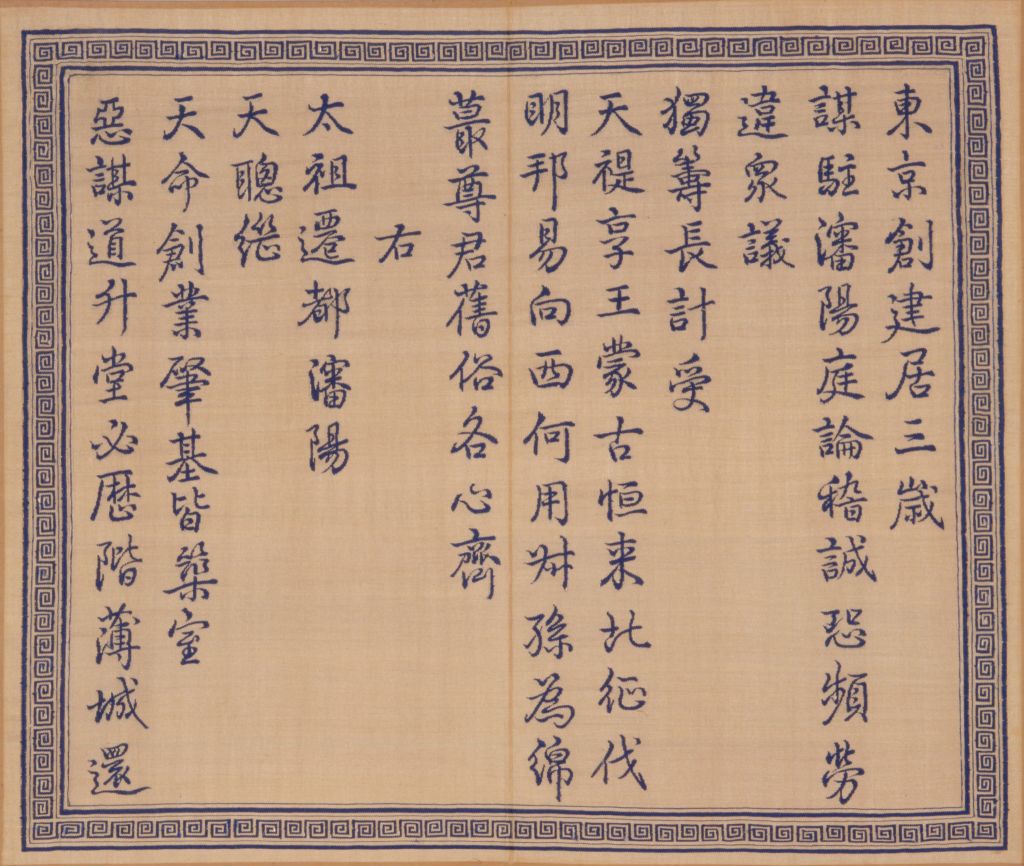 東京創建居三歲
謀駐瀋陽庭論稽誠恐頻勞
違衆議
獨籌長計受
天禔享王蒙古恒来北征伐
明邦易向西何用叔孫為綿
蕞尊君舊俗各心齊
右
太祖遷都瀋陽
天聰繼
天命創業肇基皆築室
惡謀道升堂必歴階薄城還